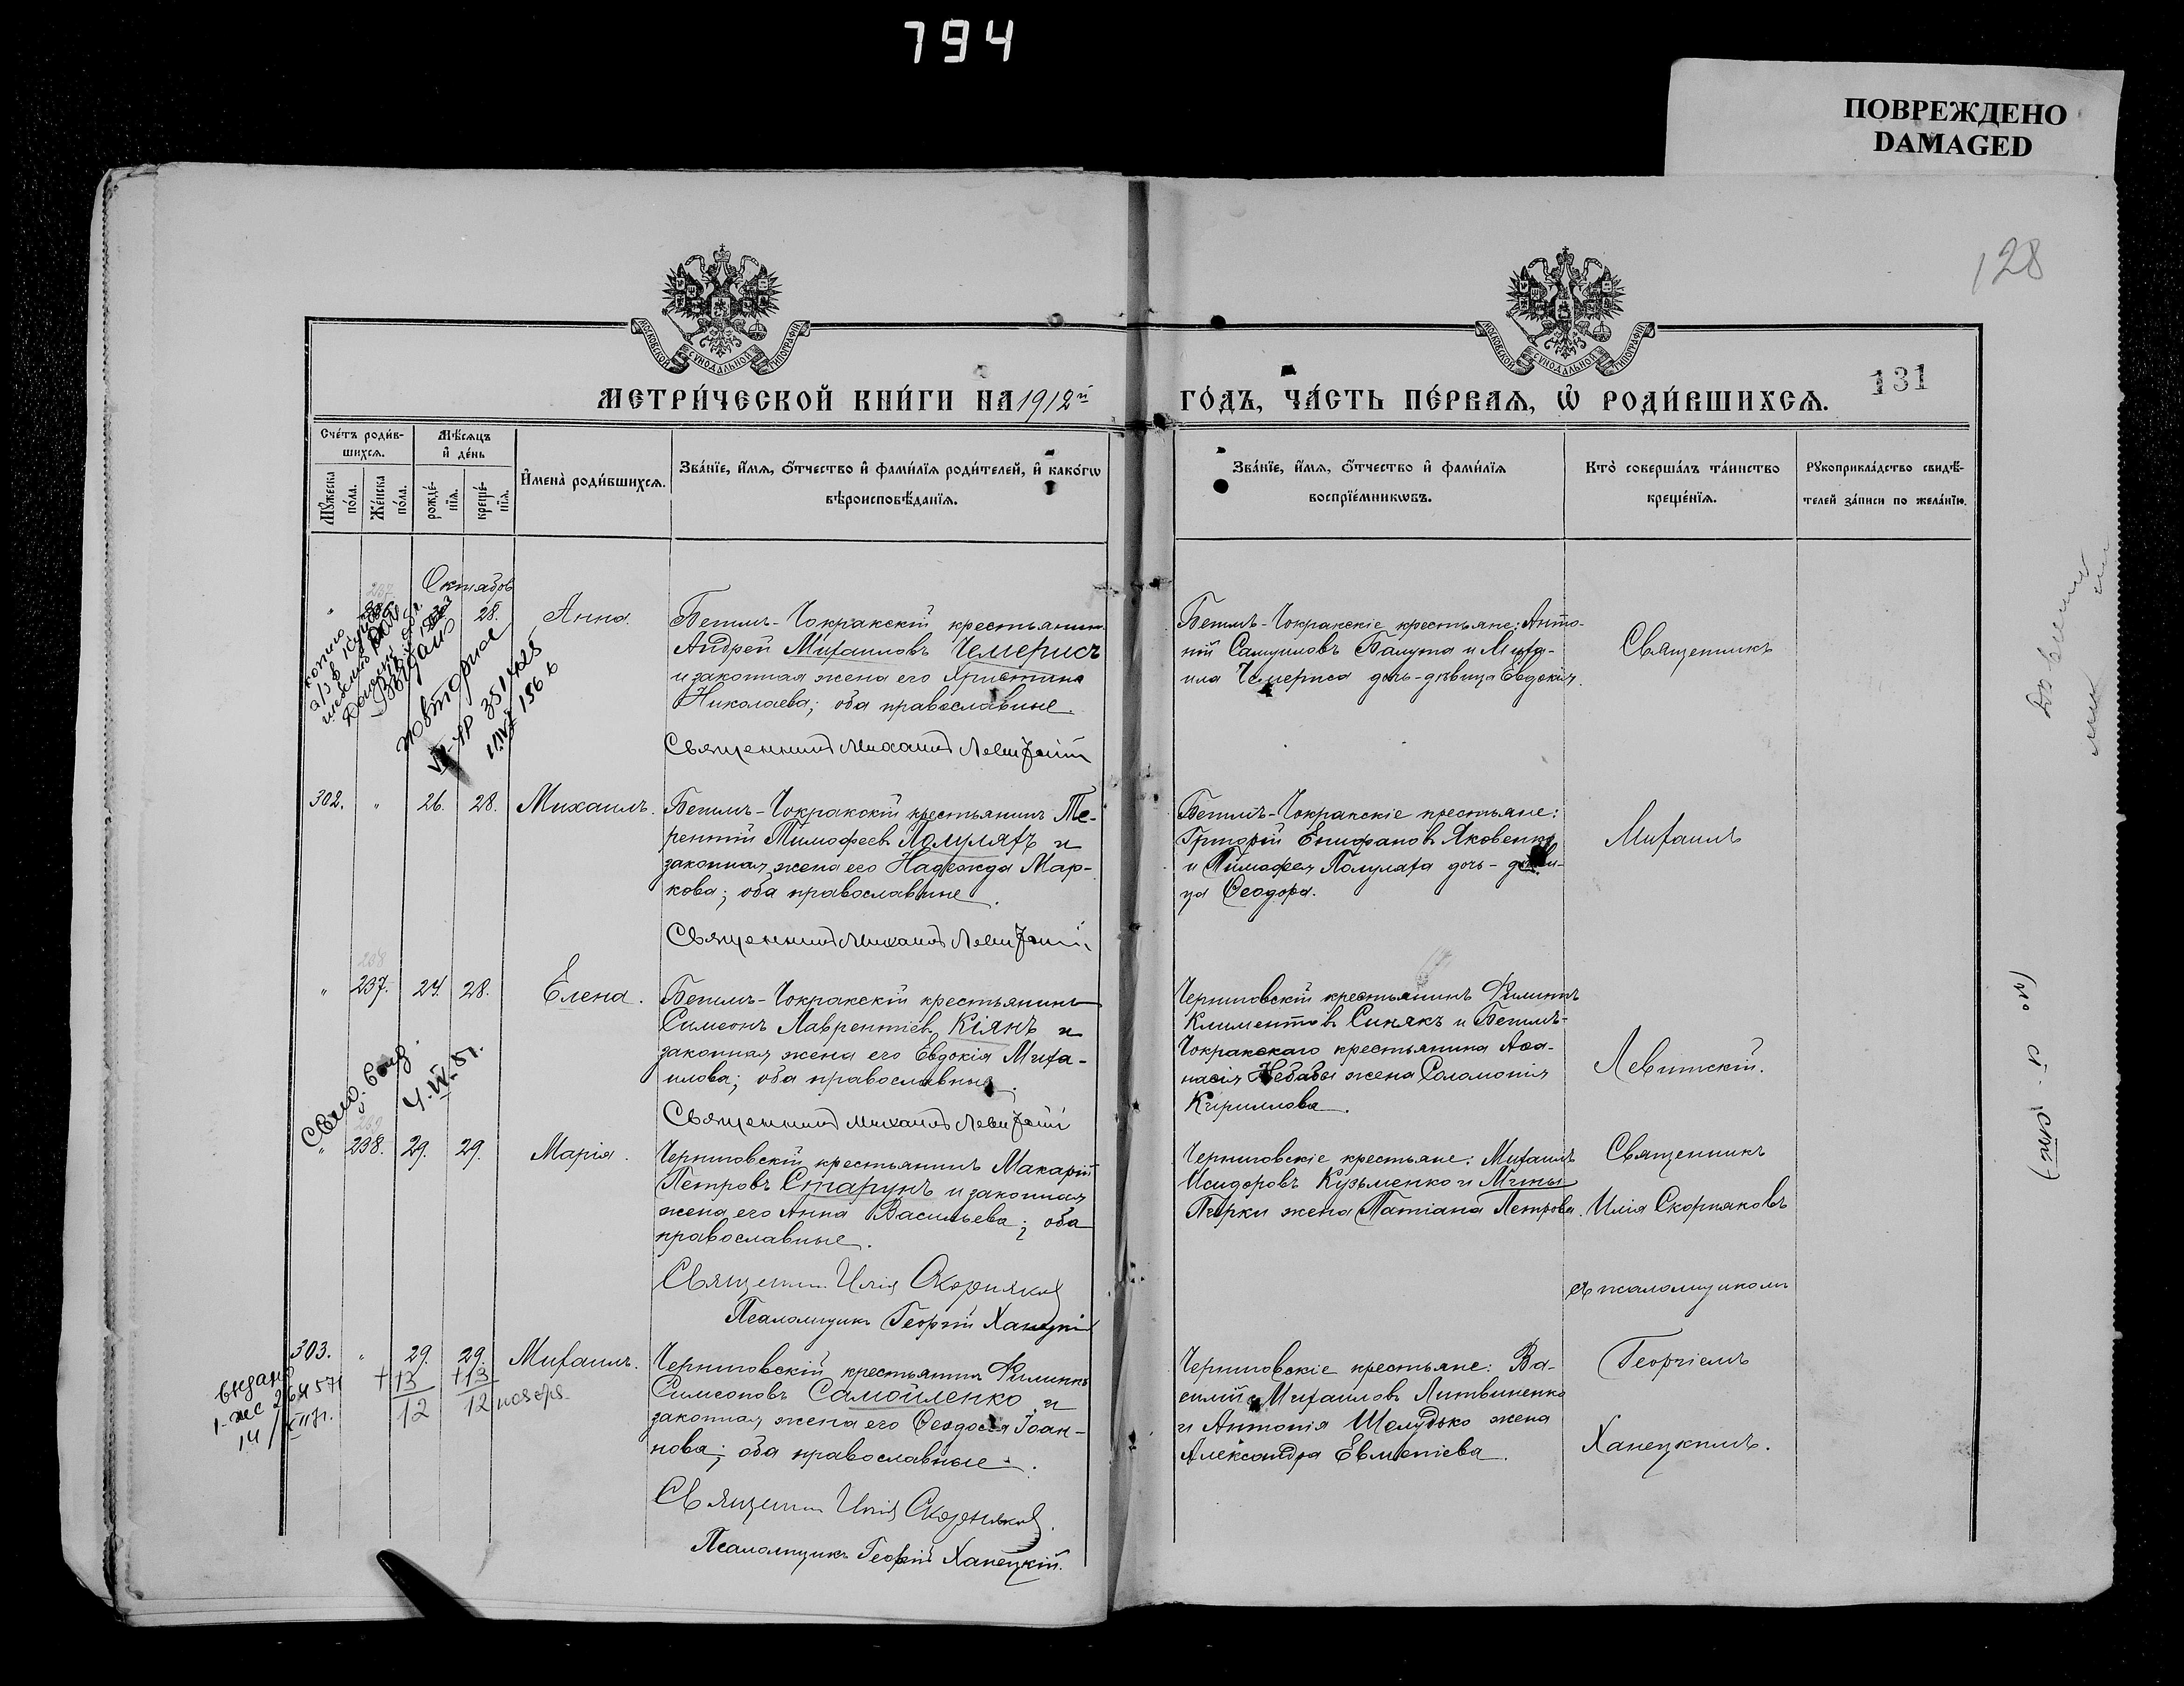 794
ПОВРЕЖДЕНО
DAMAGED
128
131
МОСКОВСКОЙ СУНОДАЛЬНОЙ ТИПОГРАФІИ
МОСКОВСКОЙ СУНОДАЛЬНОЙ ТИПОГРАФІИ
МЕТРИ́ЧЕСКОЙ КНИ́ГИ НА 1912й
ГО́ДЪ, ЧА́СТЬ ПЕ́РВАѦ, Ѡ҆ РОДИ́ВШИХСѦ.
Сче́тъ роди́в-
шихсѧ.
Мꙋ́жеска по́ла.
Же́нска по́ла.
Мѣ́сѧцъ
и҆ де́нь
рожде́-
нїѧ.
креще́-
нїѧ.
И҆мена̀ роди́вшихсѧ.
Зва́нїе, и҆́мѧ, ѻ҆́тчество и҆ фами́лїѧ роди́телей, и҆ како́гѡ
вѣроисповѣ́данїѧ.
Зва́нїе, и҆́мѧ, ѻ҆́тчество и҆ фами́лїѧ
воспрїе́мникѡвъ.
Кто̀ соверша́лъ та́инство
креще́нїѧ.
Рꙋкоприкла́дство свидѣ́-
телей за́писи по жела́нїю.
Октябрь
" 28. Анна.
Бешмъ-Чокракскій крестьянинъ
Андрей Михаиловъ Чемерисъ
и законная жена его Христина
Николаева; оба православные.
Священникъ Михаилъ Левитскій
Бешмъ-Чокракскіе крестьяне: Анто-
ній Самуиловъ Балута и Миха-
ила Чемериса дочь-дѣвица Евдокія.
Священникъ
Выдано
повторное
302. " 26. 28. Михаилъ.
Бешмъ-Чокракскій крестьянинъ Те-
рентій Тимофеевъ Полуляхъ и
законная жена его Надежда Мар-
кова; оба православные.
Священникъ Михаилъ Левитскій
Бешмъ-Чокракскіе крестьяне:
Григорій Епифановъ Яковенко
и Тимофея Полулаха дочь-дѣви-
ца Ѳеодора.
Михаилъ
238
" 237. 24. 28. Елена.
Бешмъ-Чокракскій крестьянинъ
Симеонъ Лаврентіевъ Кіянъ и
законная жена его Евдокія Миха-
илова; оба православные.
Священникъ Михаилъ Левитскій
Черниговскій крестьянинъ Филиппъ
Климентовъ Синякъ и Бешмъ-
Чокракскаго крестьянина Аѳа-
насія Небабы жена Соломонія
Кириллова.
Левитскій.
4.IV.51.
239
" 238. 29. 29. Марія.
Черниговскій крестьянинъ Макарій
Петровъ Старунъ и законная
жена его Анна Васильева; оба
православные.
Священникъ Илія Скорняковъ
Псаломщикъ Георгій Ханецкій
Черниговскіе крестьяне: Михаилъ
Исидоровъ Кузьменко и Мины
Пирки жена Татіана Петрова.
Священникъ
Илія Скорняковъ
съ псаломщикомъ
303. " 29. 29. Михаилъ.
+13 +13
12 12 ноября
выдано
Черниговскій крестьянинъ Филиппъ
Симеоновъ Самойленко и
законная жена его Ѳеодосія Іоан-
нова; оба православные.
Священникъ Илія Скорняковъ.
Псаломщикъ Георгій Ханецкій.
Черниговскіе крестьяне: Ва-
силій Михаиловъ Литвиненко
и Антонія Шелудько жена
Александра Евментіева.
Георгіемъ
Ханецкимъ.